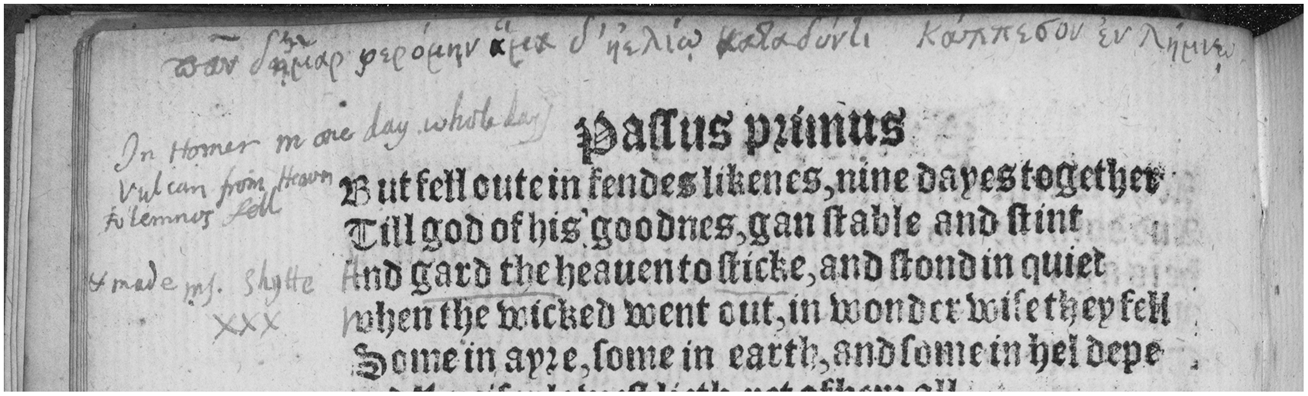 πᾶν δ' ἦμαρ φερόμην ἅμα δ' ἠελίῳ καταδύντι κάππεσον ἐν Λήμνῳ
In Homer in one day whole day
Vulcan from Heaven
to lemnos fell
Passus primus
But fell oute in fendes likenes, nine dayes together
Till god of his goodnes, gan stable and stint
& made ms. Shytte
xxx
And gard the heauen to sticke, and stond in quiet
when the wicked went out, in wonder wise they fell
Some in ayre, some in earth, and some in hel depe